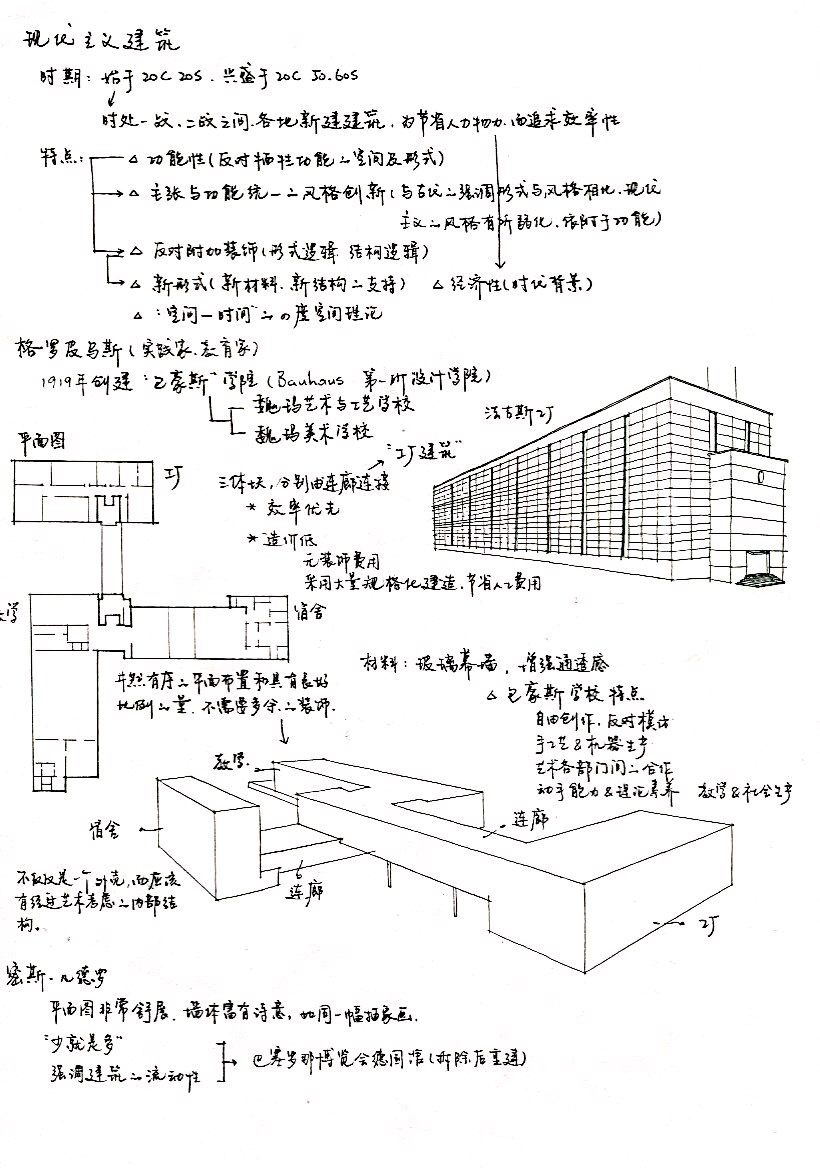 现代主义建筑
时期：始于20C 20S．兴盛于20C 50.60S
时处一战、二战之间．各地新建建筑，为节省人力物力．而追求效率性
特点：
△ 功能性(反对牺牲功能の空间及形式)
△ 主张与功能统一の风格创新(与古代の强调形式与风格相比．现代
主义の风格有所弱化．依附于功能)
△ 反对附加装饰(形式逻辑．结构逻辑)
△ 新形式(新材料．新结构の支持) △ 经济性(时代背景)
△ “空间一时间”の四度空间理论
格罗皮乌斯(实践家．教育家)
1919年创建“包豪斯”学院(Bauhaus 第一所设计学院)
魏玛艺术与工艺学校
魏玛美术学校
法古斯工厂
平面图
“工厂建筑”
工厂
三体块，分别由连廊连接
* 效率优先
* 造价低
无装饰费用
采用大量规格化建造．节省人工费用
教学
宿舍
材料：玻璃幕墙，增强通透感
井然有序の平面布置和具有良好
比例の量．不需要多余の装饰．
△ 包豪斯学校特点
自由创作．反对模仿
手工艺&机器生产
艺术各部门间の合作
动手能力&理论素养 教学&社会生产
教学．
连廊
宿舍
连廊
工厂
不仅仅是一个外壳，而应该
有经过艺术考虑の内部结
构。
密斯·凡德罗
平面图非常舒展．墙体富有诗意，如同一幅抽象画．
“少就是多”
强调建筑の流动性
巴塞罗那博览会德国馆(拆除后重建)